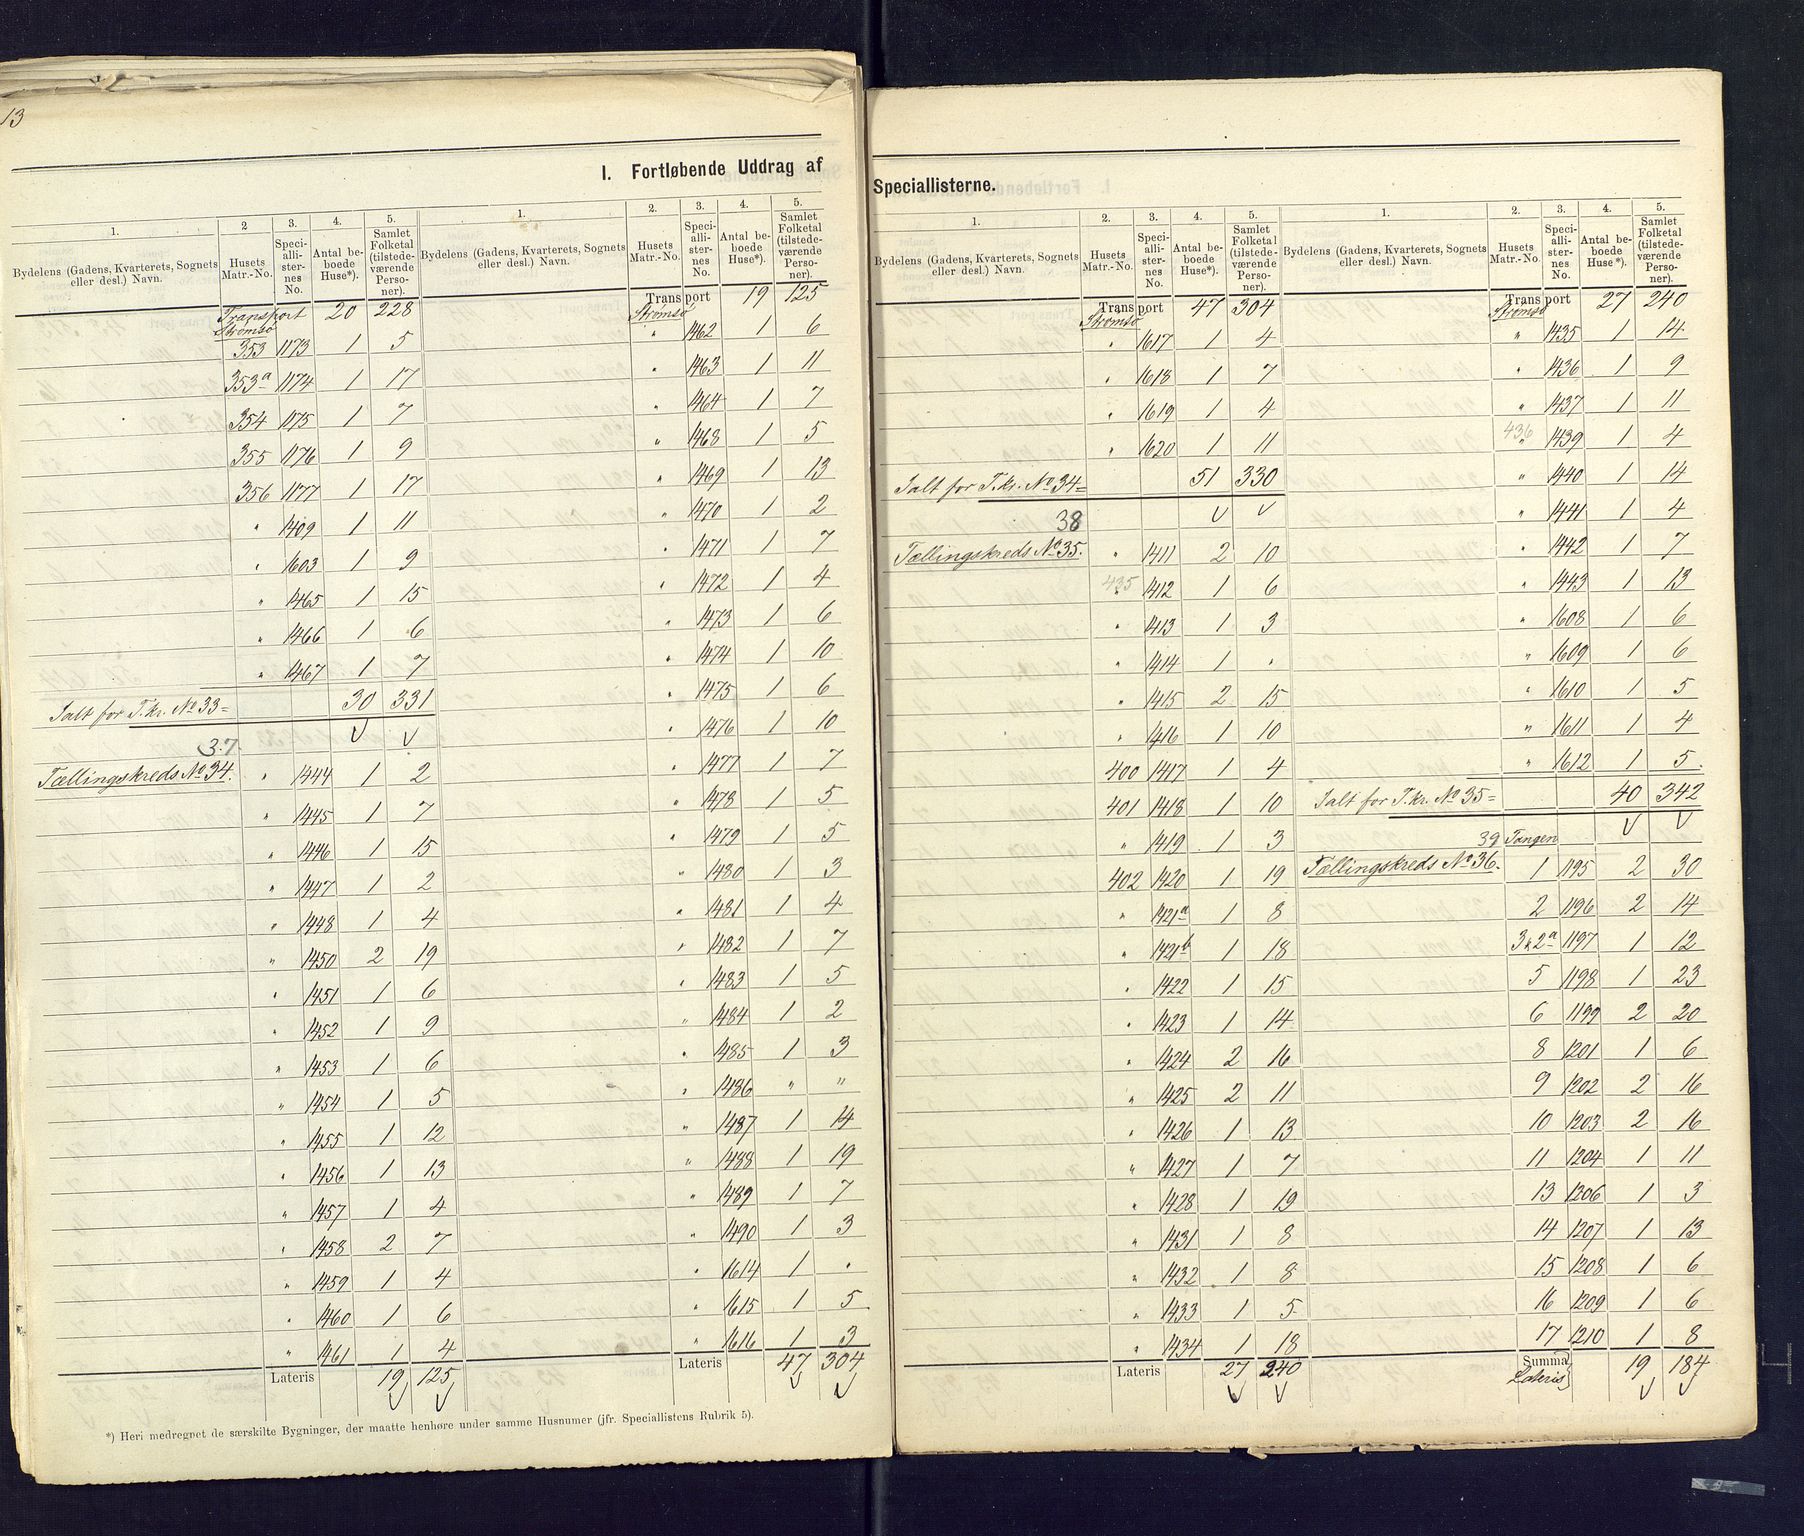 13
I. Fortløbende Uddrag af
1. 2 3. 4. 5. 1. 2. 3. 4. 5.
Bydelens (Gadens, Kvarterets, Sognets eller desl.) Navn. Husets Matr.-No. Speciallisternes No. Antal beboede Huse*). Samlet Folketal (tilstedeværende Personer). Bydelens (Gadens, Kvarterets, Sognets eller desl.) Navn. Husets Matr.-No. Speciallisternes No. Antal beboede Huse*). Samlet Folketal (tilstedeværende Personer).
Transport 20 228
Strømsø
353 1173 1 5
353a 1174 1 17
354 1175 1 7
355 1176 1 9
356 1177 1 17
" 1409 1 11
" 1603 1 9
" 1465 1 15
" 1466 1 6
" 1467 1 7
Ialt for T.kr. No 33 = 30 331
37
Tællingskreds No 34. " 1444 1 2
" 1445 1 7
" 1446 1 15
" 1447 1 2
" 1448 1 4
" 1450 2 19
" 1451 1 6
" 1452 1 9
" 1453 1 6
" 1454 1 5
" 1455 1 12
" 1456 1 13
" 1457 1 4
" 1458 2 7
" 1459 1 4
" 1460 1 6
" 1461 1 4
Lateris 19 125
Transport 19 125
Strømsø
" 1462 1 6
" 1463 1 11
" 1464 1 7
" 1468 1 5
" 1469 1 13
" 1470 1 2
" 1471 1 7
" 1472 1 4
" 1473 1 6
" 1474 1 10
" 1475 1 6
" 1476 1 10
" 1477 1 7
" 1478 1 5
" 1479 1 5
" 1480 1 3
" 1481 1 4
" 1482 1 7
" 1483 1 5
" 1484 1 2
" 1485 1 3
" 1486 " "
" 1487 1 14
" 1488 1 19
" 1489 1 7
" 1490 1 3
" 1614 1 "
" 1615 1 5
" 1616 1 3
Lateris 47 304
*) Heri medregnet de særskilte Bygninger, der maatte henhøre under samme Husnumer (jfr. Speciallistens Rubrik 5).
Speciallisterne.
1. 2. 3. 4. 5. 1. 2. 3. 4. 5.
Bydelens (Gadens, Kvarterets, Sognets eller desl.) Navn. Husets Matr.-No. Speciallisternes No. Antal beboede Huse*). Samlet Folketal (tilstedeværende Personer). Bydelens (Gadens, Kvarterets, Sognets eller desl.) Navn. Husets Matr.-No. Speciallisternes No. Antal beboede Huse*). Samlet Folketal (tilstedeværende Personer).
Transport 47 304
Strømsø
" 1617 1 4
" 1618 1 7
" 1619 1 4
" 1620 1 11
Ialt for T.kr. No 34 = 51 330
38
Tællingskreds No 35. " 1411 2 10
435 " 1412 1 6
" 1413 1 3
" 1414 1 "
" 1415 2 15
" 1416 1 10
400 1417 1 4
401 1418 1 10
" 1419 1 3
402 1420 1 19
" 1421a 1 8
" 1421b 1 18
" 1422 1 15
" 1423 1 14
" 1424 2 16
" 1425 2 11
" 1426 1 13
" 1427 1 7
" 1428 1 19
" 1431 1 8
" 1432 1 8
" 1433 1 5
" 1434 1 18
Lateris 27 240
Transport 27 240
Strømsø
" 1435 1 14
" 1436 1 9
" 1437 1 11
436 " 1439 1 4
" 1440 1 14
" 1441 1 4
" 1442 1 7
" 1443 1 13
" 1608 1 6
" 1609 1 6
" 1610 1 5
" 1611 1 4
" 1612 1 5
Ialt for T.kr. No 35 = 40 342
39 Tangen
Tællingskreds No 36. 1 1195 2 30
2 1196 2 14
3 & 2a 1197 1 12
5 1198 1 23
6 1199 2 20
8 1201 1 6
9 1202 2 16
10 1203 2 16
11 1204 1 11
13 1206 1 3
14 1207 1 13
15 1208 1 6
16 1209 1 6
17 1210 1 8
Summa Lateris 19 184